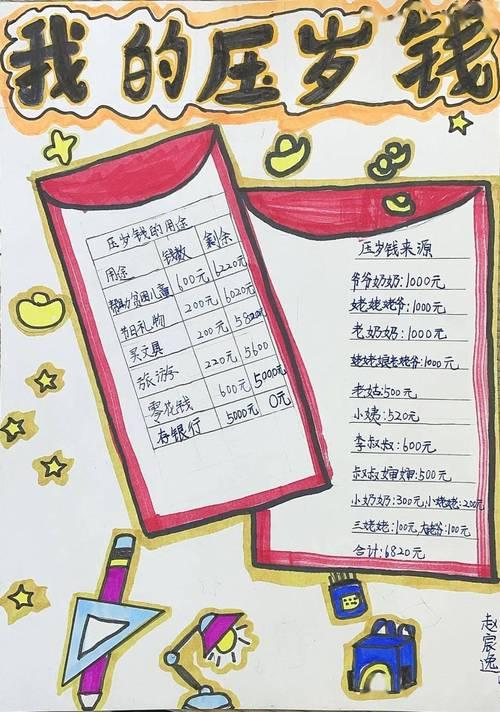 我的压岁钱
压岁钱的用途
用途 钱数 剩余
帮助贫困儿童 600元 6220元
节日礼物 200元 6020元
买文具 200元 5820元
旅游 220元 5600
零花钱 600元 5000元
存银行 5000元 0元
压岁钱来源
爷爷奶奶:1000元
姥姥姥爷:1000元
老奶奶:1000元
姥姥娘老姥爷:1000元
老姑:500元
小姨:520元
李叔叔:600元
叔叔婶婶:500元
小奶奶:300元,小姥姥:200元
三姥姥:100元,大姥爷:100元
合计:6820元
赵宸逸